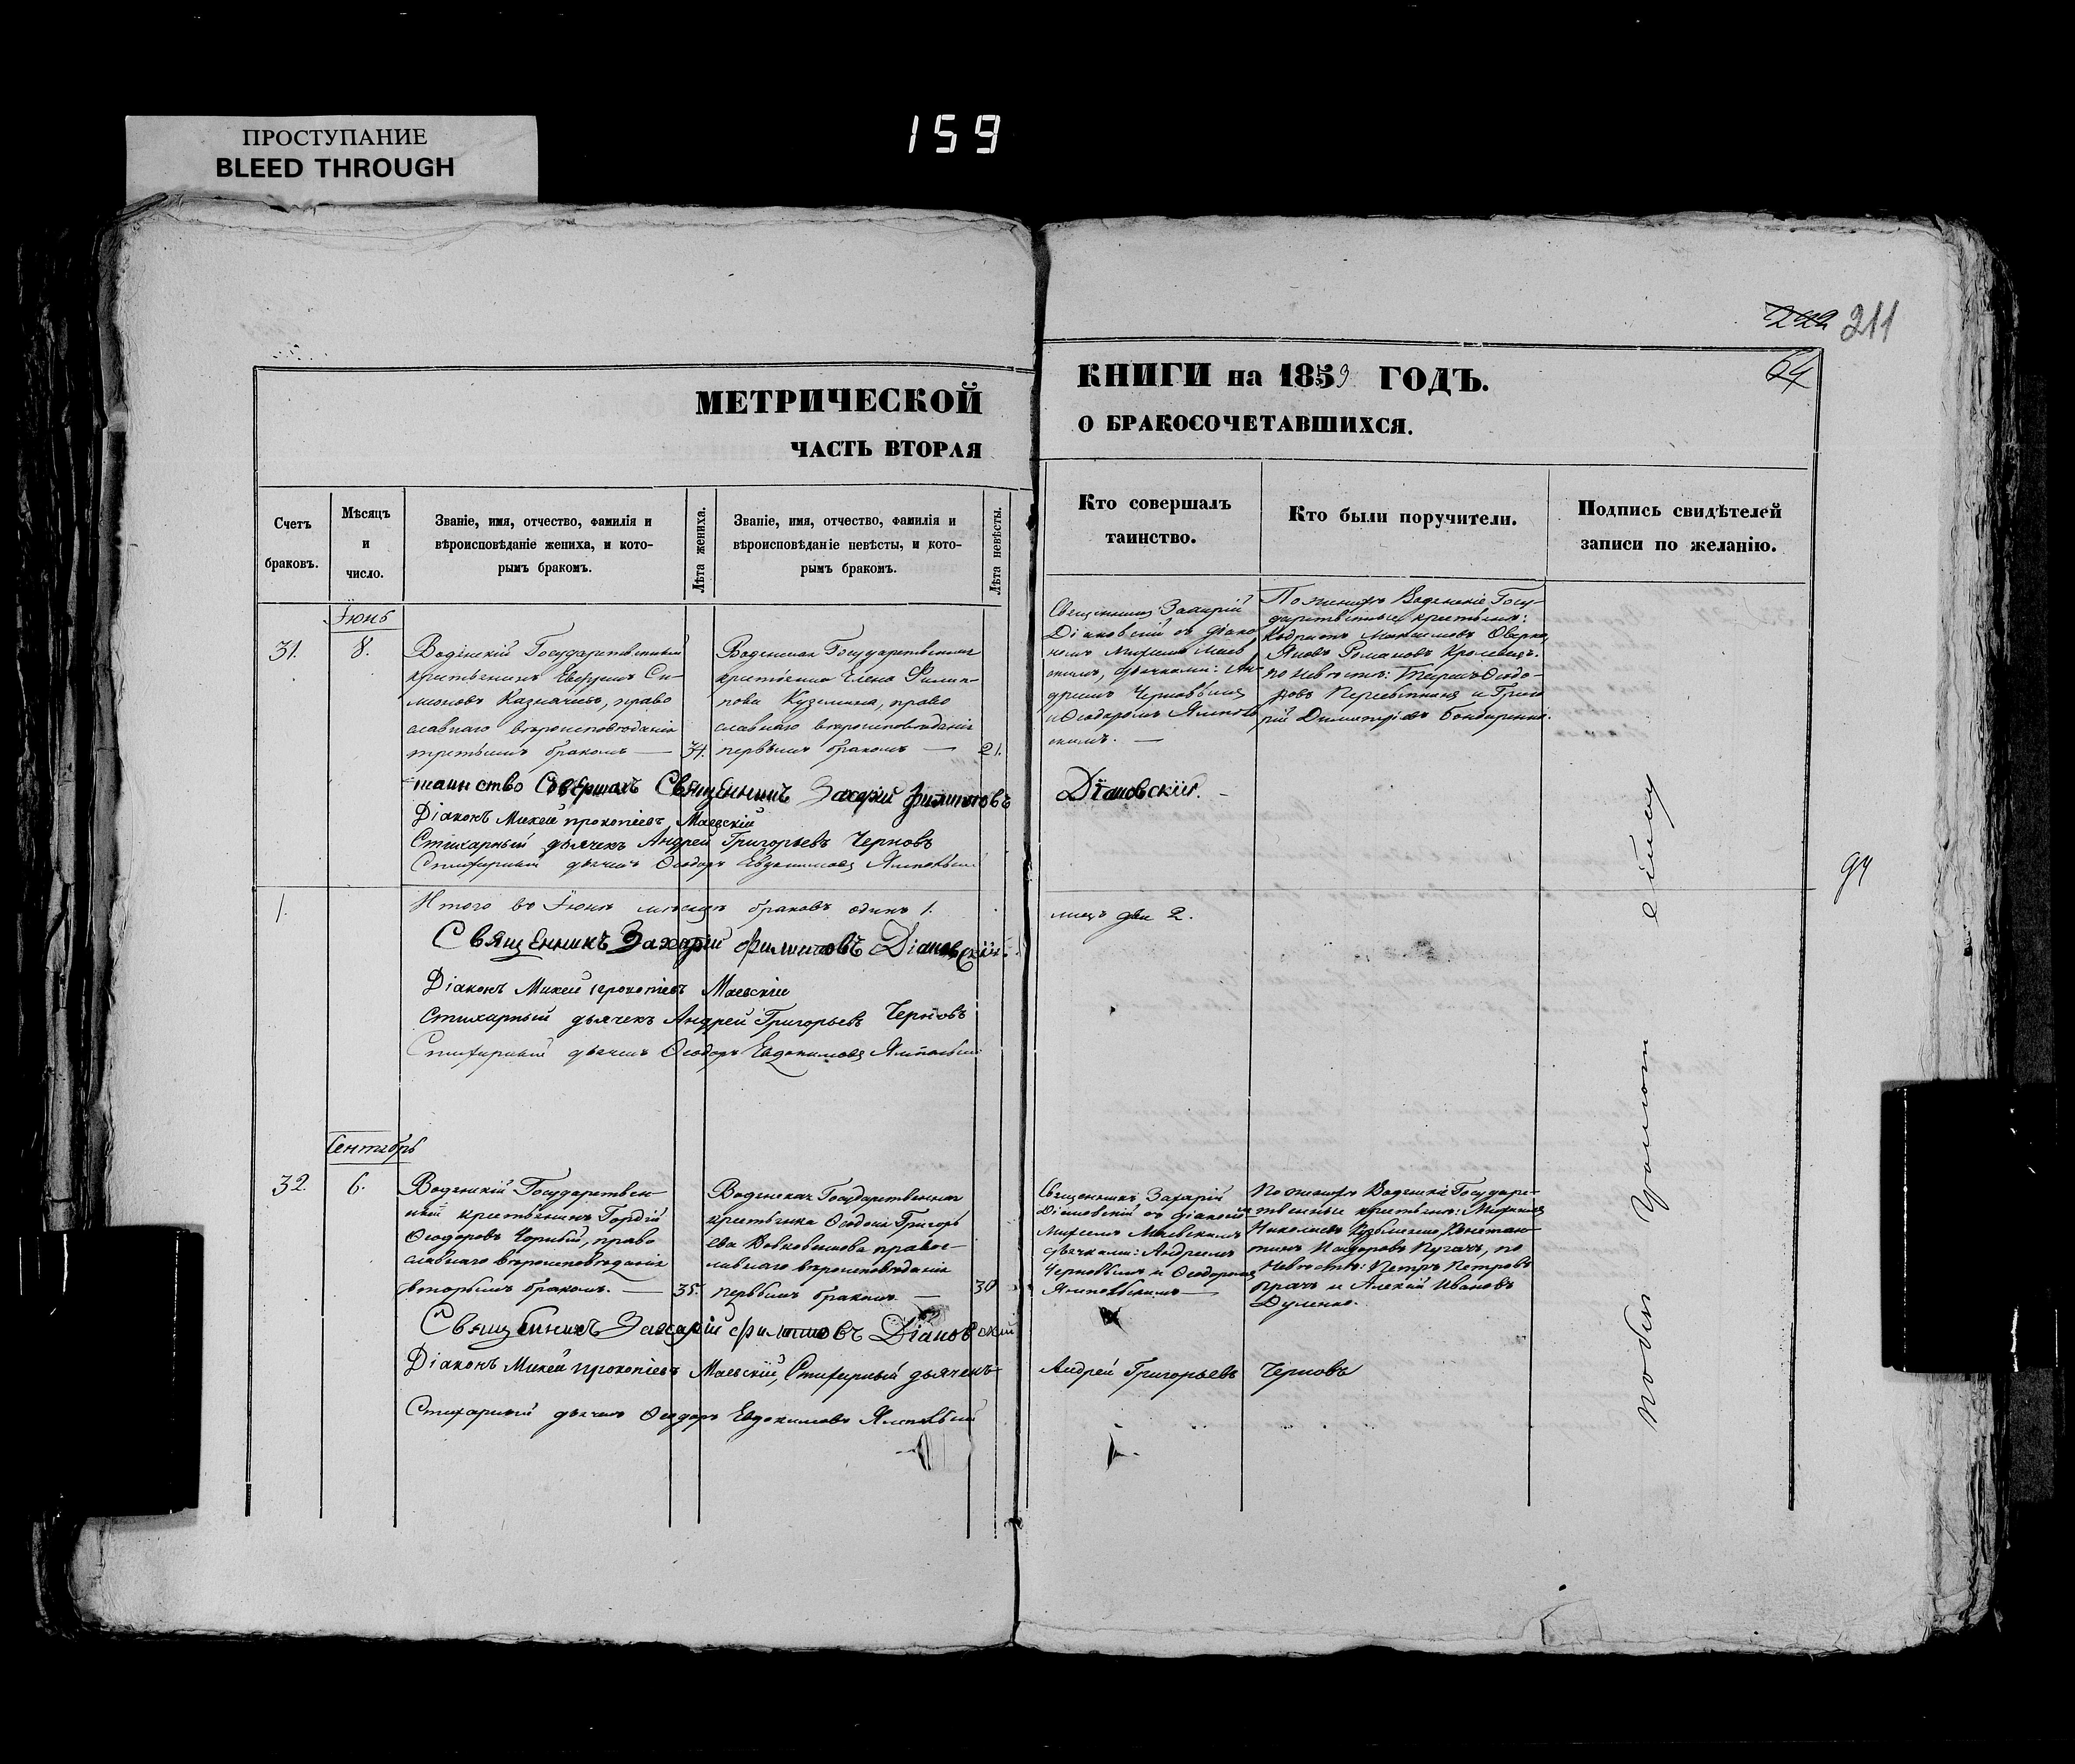 ПРОСТУПАНИЕ
BLEED THROUGH
159
222 211
64
МЕТРИЧЕСКОЙ
ЧАСТЬ ВТОРАЯ
КНИГИ на 1859 ГОДЪ.
О БРАКОСОЧЕТАВШИХСЯ.
Счетъ
браковъ.
Мѣсяцъ
и
число.
Званіе, имя, отчество, фамилія и
вѣроисповѣданіе жениха, и кото-
рымъ бракомъ.
Лѣта жениха.
Званіе, имя, отчество, фамилія и
вѣроисповѣданіе невѣсты, и кото-
рымъ бракомъ.
Лѣта невѣсты.
Кто совершалъ
таинство.
Кто были поручители.
Подпись свидѣтелей
записи по желанію.
Іюнь
31.
8.
Водянскій Государственный
крестьянинъ Си-
моновъ Казначеевъ, право
славнаго вѣроисповѣданія
третьимъ бракомъ —
34.
Водянская Государственная
крестьянка Елена Филип-
пова Кузьмина, право
славнаго вѣроисповѣданія
первымъ бракомъ —
21.
Священникъ Захарій
Діановскій съ діако
номъ Михеемъ Маев
скимъ, дьячками: Ан
дреемъ Черновымъ
и Ѳеодоромъ Ямпов
скимъ. —
По женихѣ Водянскіе Госу-
дарственные крестьяне:
Максимовъ
Яковъ Романовъ
по невѣстѣ: Ѳеодо-
ровъ и Григо
рій Димитріевъ Бондаренко.
таинство Совершалъ Священникъ Захарій филиповъ
Діановскій. —
Діаконъ Михей прокопіевъ Маевскій
Стихарный дьячекъ Андрей Григорьевъ Черновъ
Стихарный дьячекъ Ѳеодоръ Евдокимовъ
1.
Итого въ Іюнѣ мѣсяцѣ браковъ одинъ 1.
лицъ два 2.
Священникъ Захарій филиповъ Діановскій.
Діаконъ Михей прокопіевъ Маевскій
Стихарный дьячекъ Андрей Григорьевъ Черновъ
Стихарный дьячекъ Ѳеодоръ Евдокимовъ
Сентябрь
32.
6.
Водянскій Государствен-
ный крестьянинъ Гордій
Ѳеодоровъ Чорный, право
славнаго вѣроисповѣданія
вторымъ бракомъ. —
35.
Водянская Государственная
крестьянка Ѳеодосія Григорь
ева православ-
наго вѣроисповѣданія
первымъ бракомъ —
30
Священникъ Захарій
Діановскій съ діакономъ
Михеемъ Маевскимъ
дьячками: Андреемъ
Черновымъ и Ѳеодоромъ
По женихѣ Водянскіе Государс-
твенные крестьяне:
Николаевъ Констан-
тинъ Пугачъ, по
невѣстѣ: Петръ Петровъ
и Алексій Ивановъ
Дуленко.
Священникъ Захарій филиповъ Діановскій
Діаконъ Михей прокопіевъ Маевскій, Стихарный дьячекъ
Андрей Григорьевъ Черновъ
Стихарный дьячекъ Ѳеодоръ Евдокимовъ